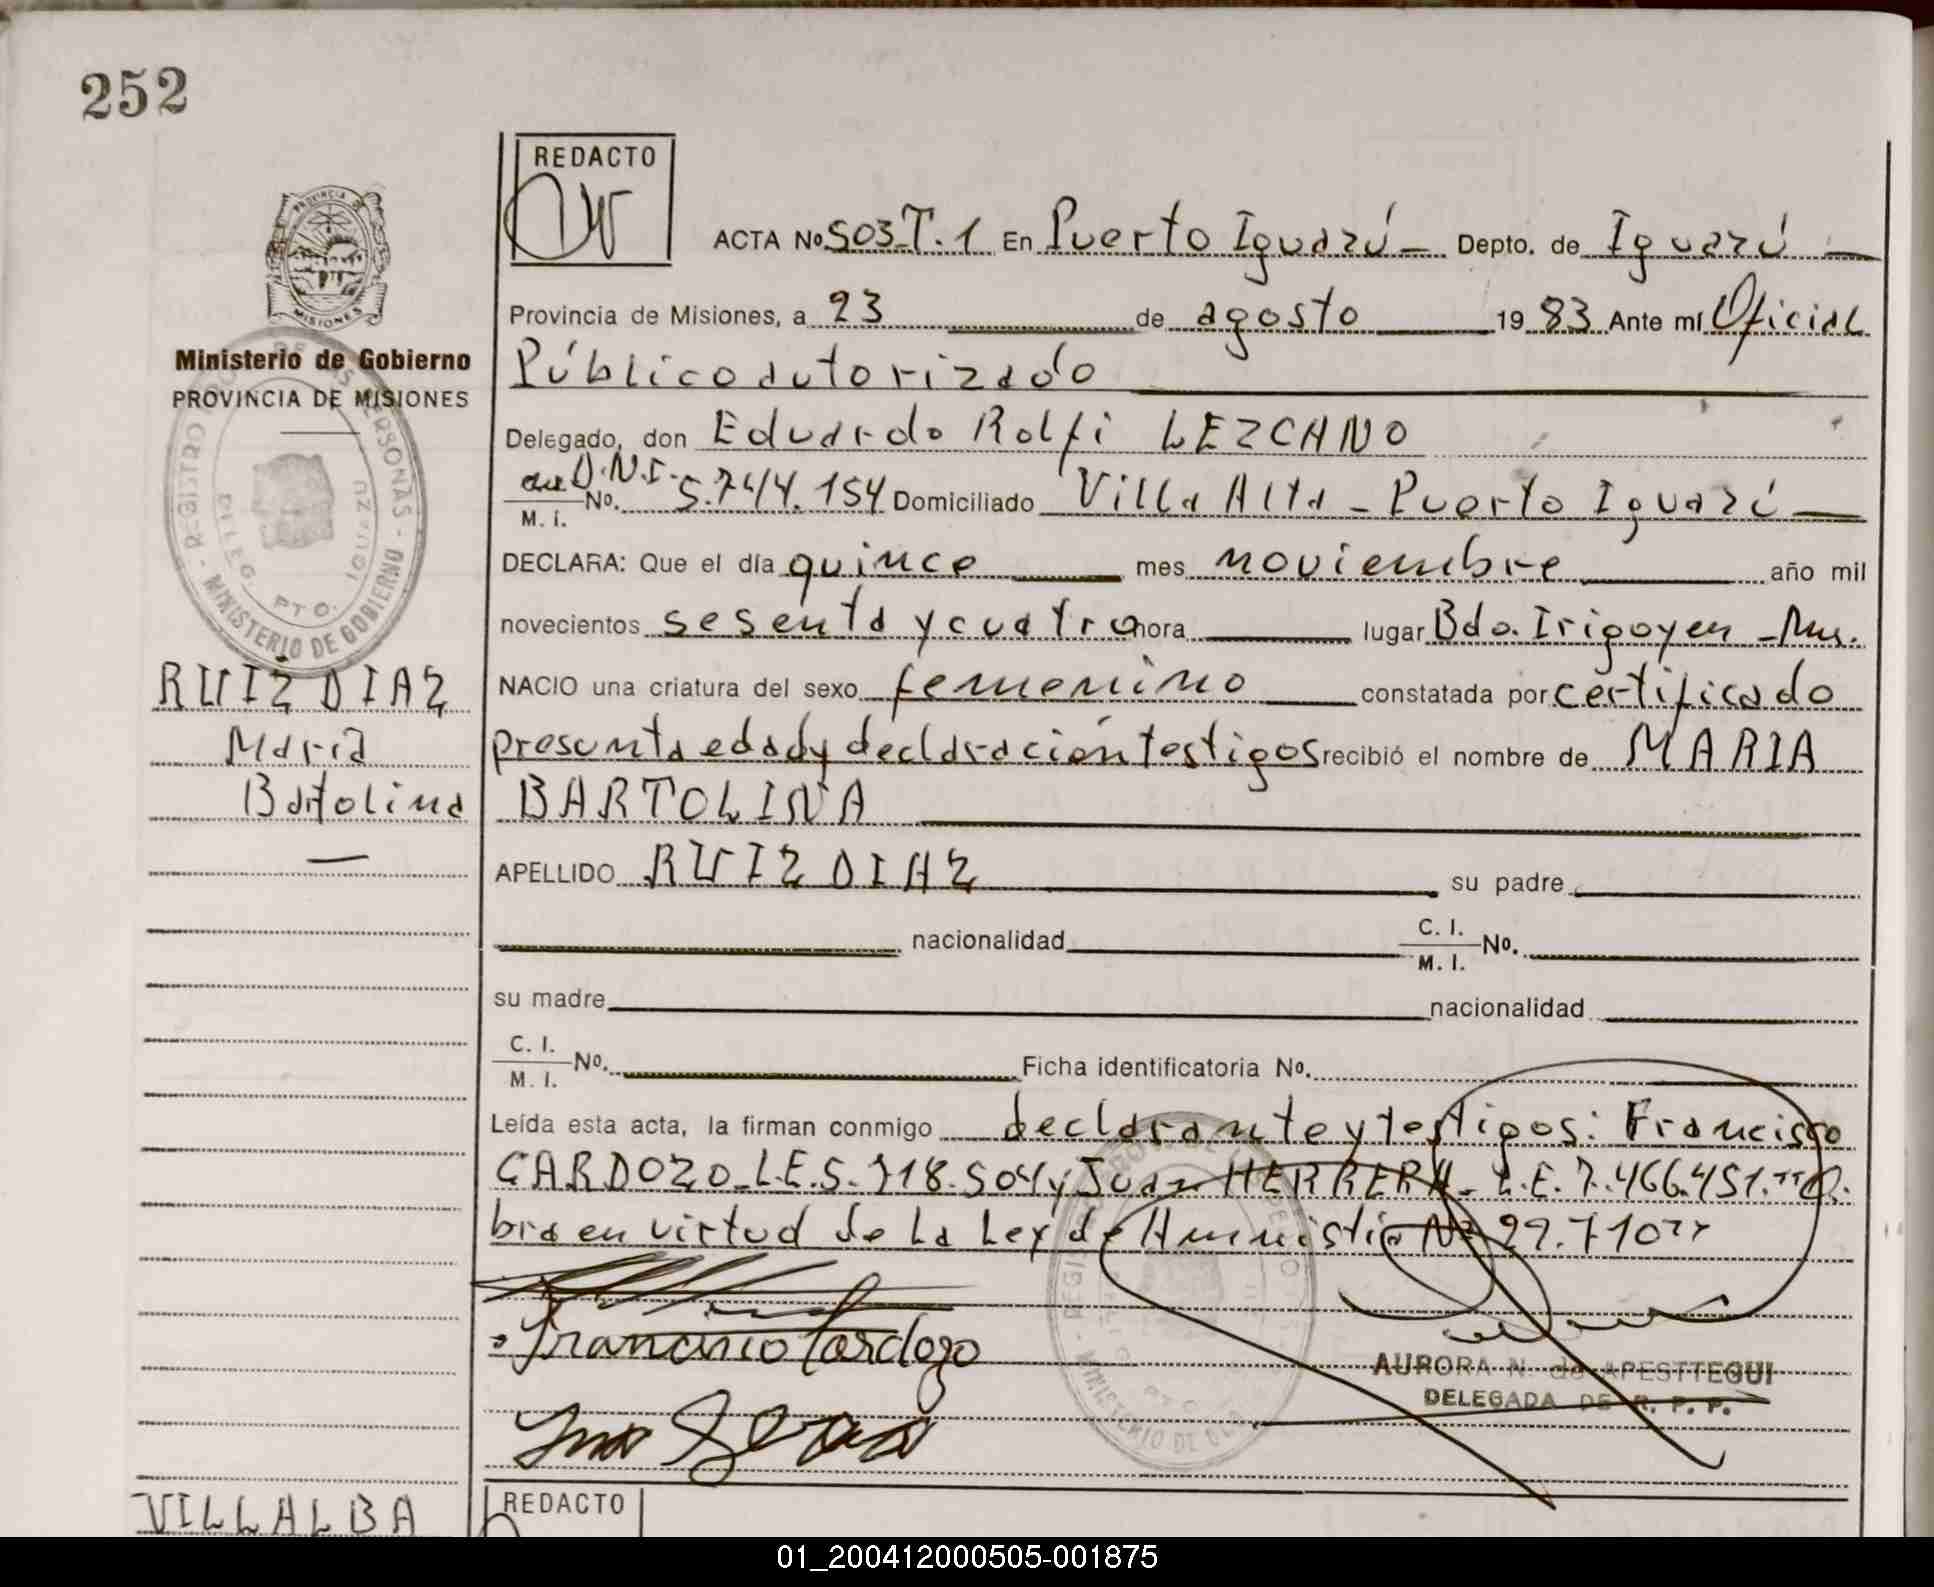 252
REDACTO
ACTA No. 503 T. 1 En Puerto Iguazú Depto. de Iguazú
Provincia de Misiones, a 23 de agosto 1983 Ante mí Oficial
Público autorizado
Delegado, don Eduardo Rolfi LEZCANO
D.N.I. No. 5.744.154 Domiciliado Villa Alta - Puerto Iguazú
M. I.
DECLARA: Que el día quince mes noviembre año mil
novecientos sesenta y cuatro hora lugar Bdo. Irigoyen - Mnes.
NACIO una criatura del sexo femenino constatada por certificado
presunta edad y declaración testigos recibió el nombre de MARIA
BARTOLINA
APELLIDO RUIZ DIAZ su padre
nacionalidad C. I. No.
M. I.
su madre nacionalidad
C. I. No. Ficha identificatoria No.
M. I.
Leída esta acta, la firman conmigo declarante y testigos: Francisco
CARDOZO - L.E. 5.718.504 y Juan HERRERA - L.E. 7.466.451. "O.
bra en virtud de la Ley de Amnistia Nº 22.710"
Francisco Cardozo
AURORA N. de APESTTEGUI
DELEGADA DE R. P. P.
PROVINCIA DE
MISIONES
Ministerio de Gobierno
PROVINCIA DE MISIONES
REGISTRO DE LAS PERSONAS - MINISTERIO DE GOBIERNO
DELEG. PTO. IGUAZU
RUIZ DIAZ
Maria
Bartolina
VILLALBA
REDACTO
01_200412000505-001875